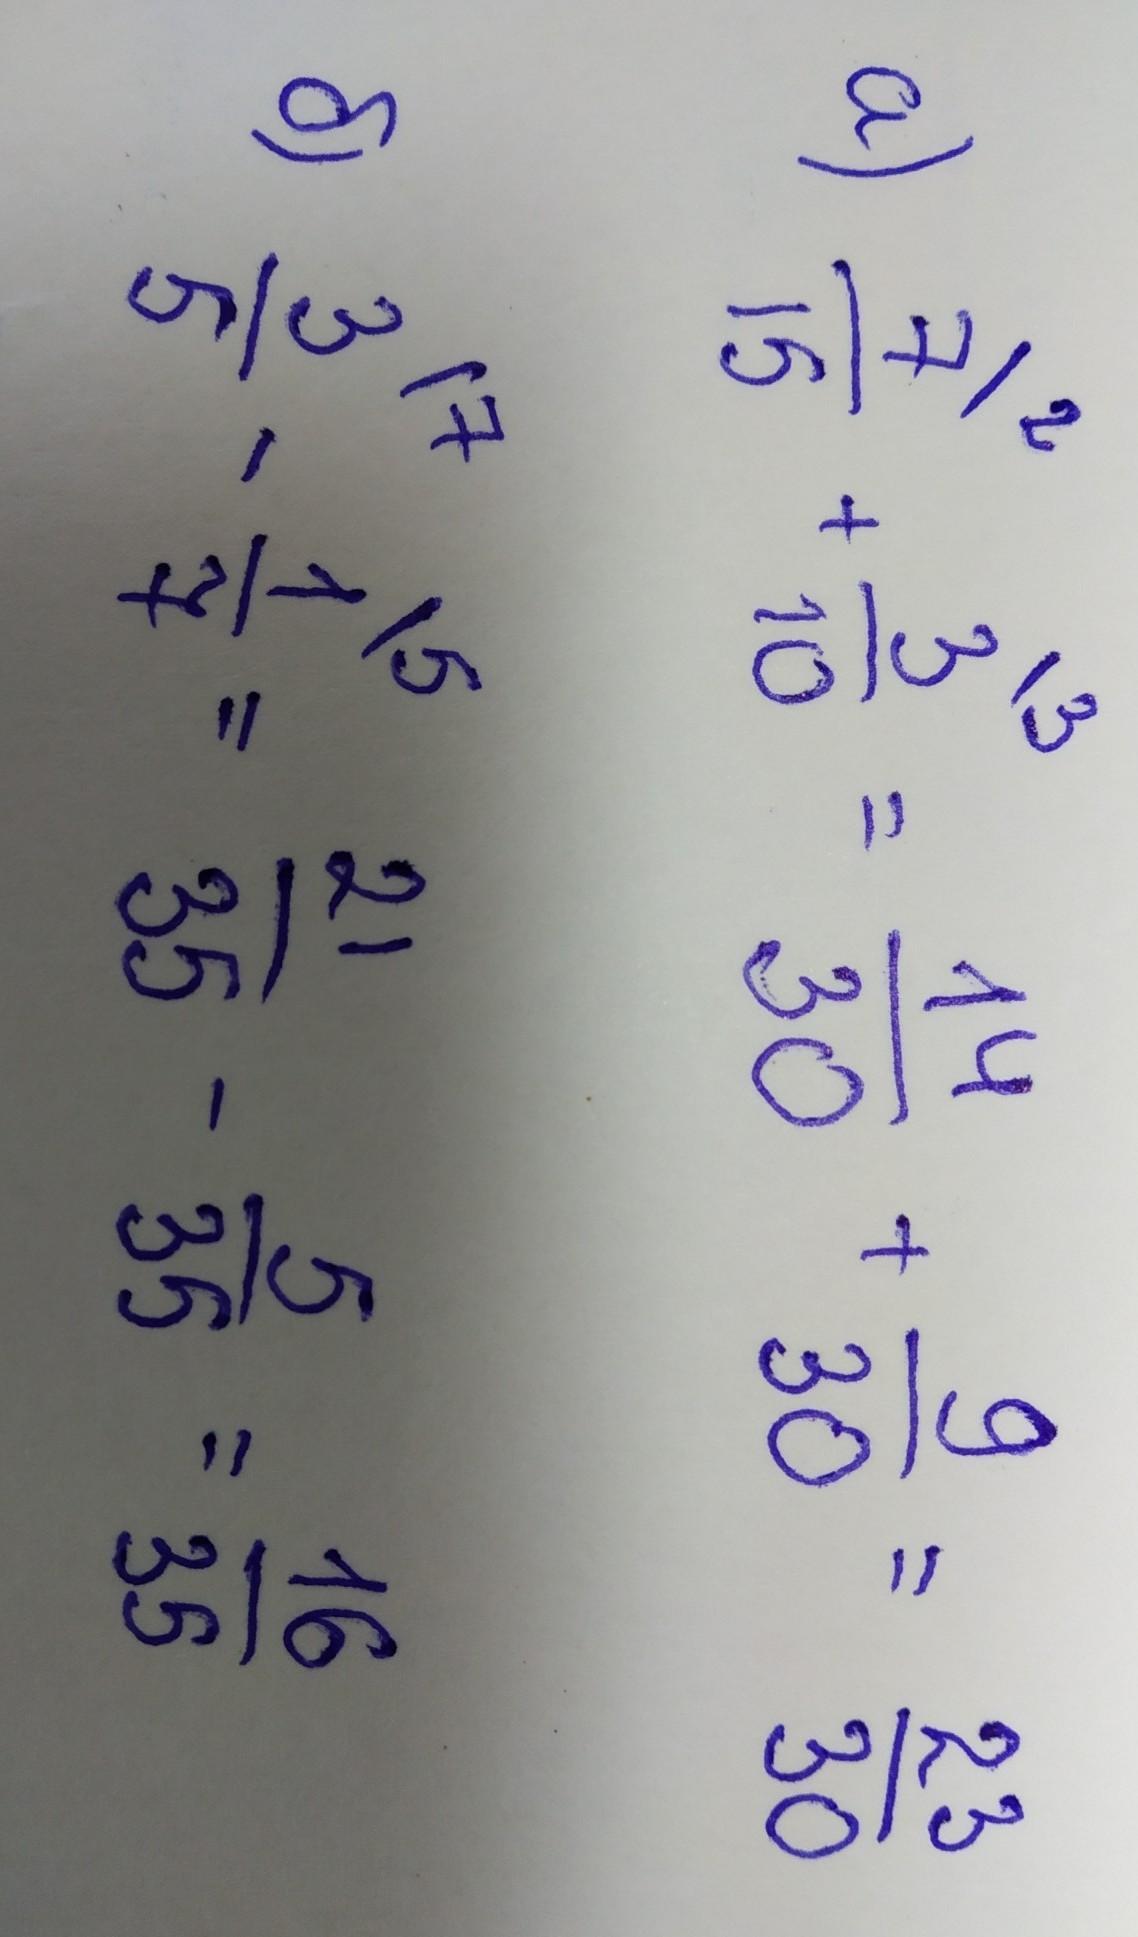 а) 7/15 \2 + 3/10 \3 = 14/30 + 9/30 = 23/30
б) 3/5 \7 - 1/7 \5 = 21/35 - 5/35 = 16/35